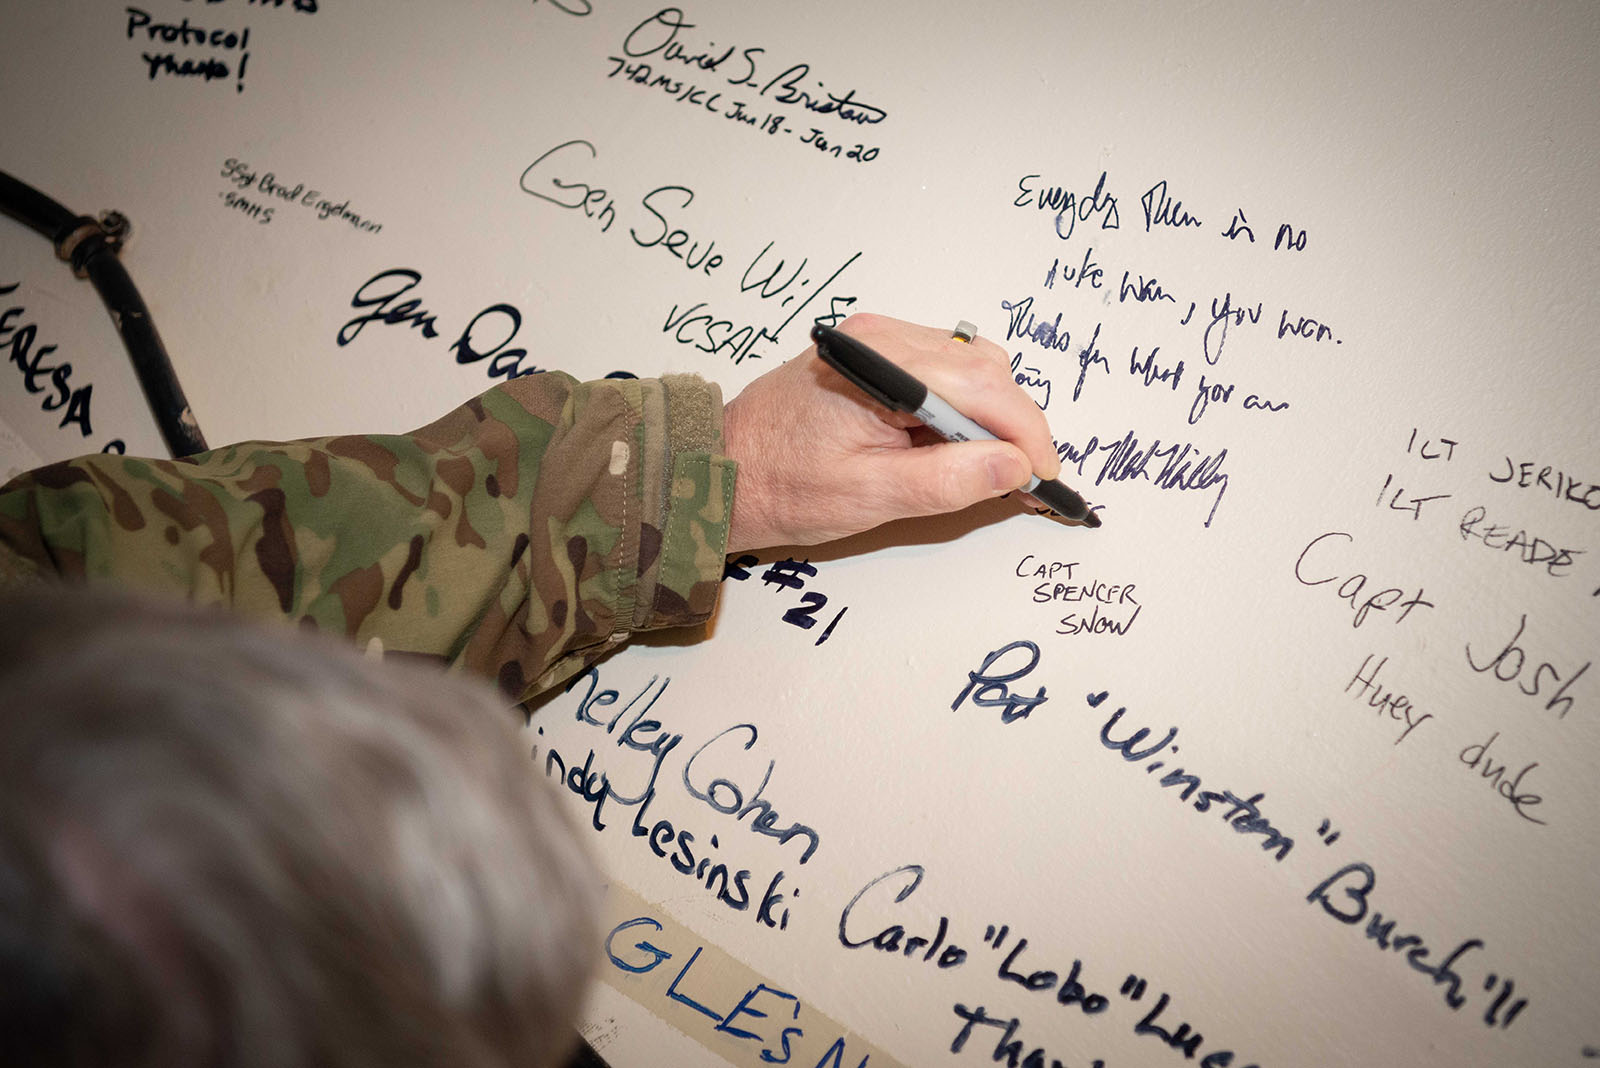 Protocol
Thanks!
David S. Bristow
742 MS/CC Jun 18 - Jan 20
SSgt Brad Engelmann
-SMHS
Gen Seve Wils
VCSAF
Gen Dav
ERESA
Everyday Then is no
nuke war, you won.
Thanks for what you are
doing
#21
CAPT
SPENCER
SNOW
1LT JERIKO
1LT READE
Capt Josh
Huey dude
Pat "Winston" Burch
helley Cohen
indy Lesinski
Carlo "Lobo" Luc
Than
GLEsN